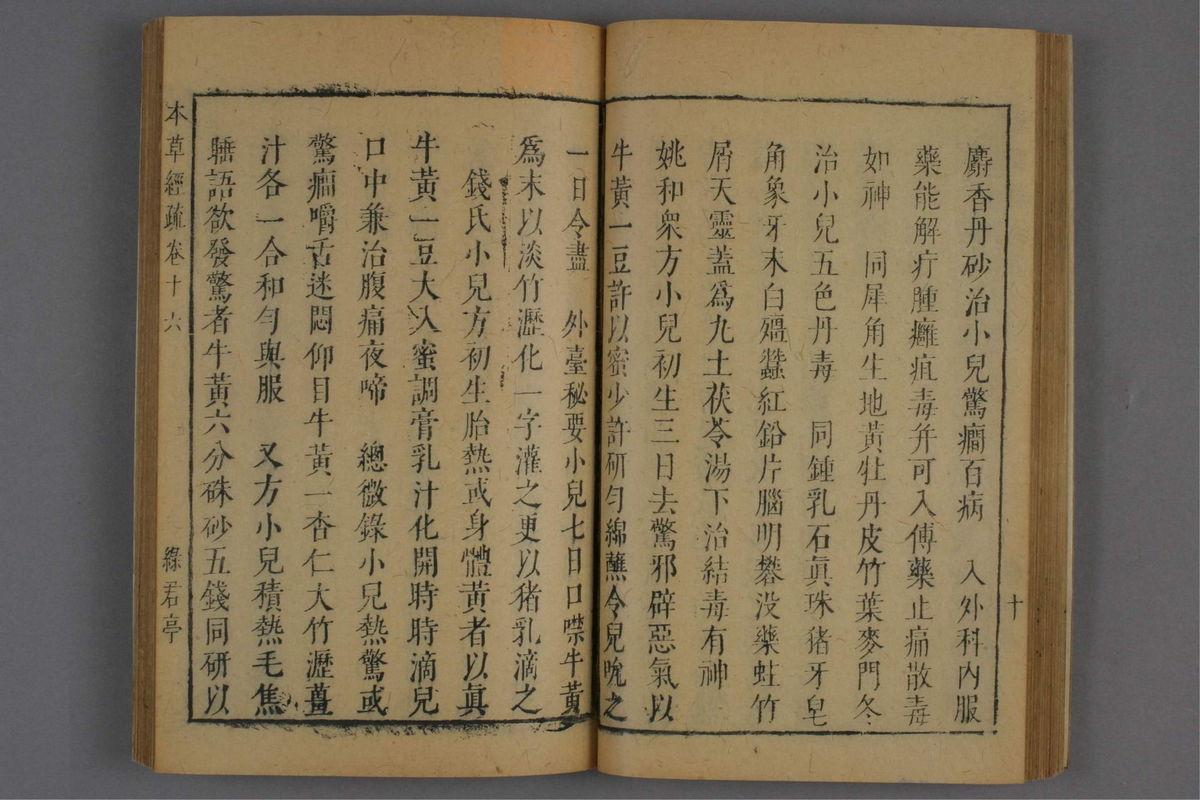 麝香丹砂治小兒驚癇百病　入外科內服
藥能解疔腫癰疽毒并可入傅藥止痛散毒
如神　同犀角生地黃牡丹皮竹葉麥門冬
治小兒五色丹毒　同鍾乳石眞珠猪牙皂
角象牙末白殭蠶紅鉛片腦明礬没藥蛀竹
屑天靈蓋爲丸土茯苓湯下治結毒有神
姚和衆方小兒初生三日去驚邪辟惡氣以
牛黃一豆許以蜜少許研匀綿蘸令兒吮之
十
一日令盡　外臺秘要小兒七日口噤牛黃
爲末以淡竹瀝化一字灌之更以猪乳滴之
錢氏小兒方初生胎熱或身體黃者以眞
牛黃一豆大入蜜調膏乳汁化開時時滴兒
口中兼治腹痛夜啼　總微錄小兒熱驚或
驚癎嚼舌迷悶仰目牛黃一杏仁大竹瀝薑
汁各一合和匀與服　又方小兒積熱毛焦
睡語欲發驚者牛黃六分硃砂五錢同研以
本草經疏卷十六
綠君亭